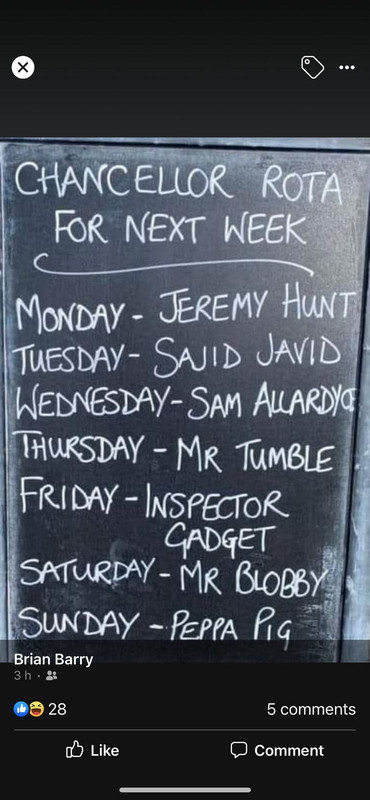 CHANCELLOR ROTA
FOR NEXT WEEK
MONDAY - JEREMY HUNT
TUESDAY - SAJID JAVID
WEDNESDAY - SAM ALLARDYCE
THURSDAY - MR TUMBLE
FRIDAY - INSPECTOR
GADGET
SATURDAY - MR BLOBBY
SUNDAY - PEPPA PIG
Brian Barry
3 h ·
28
5 comments
Like
Comment